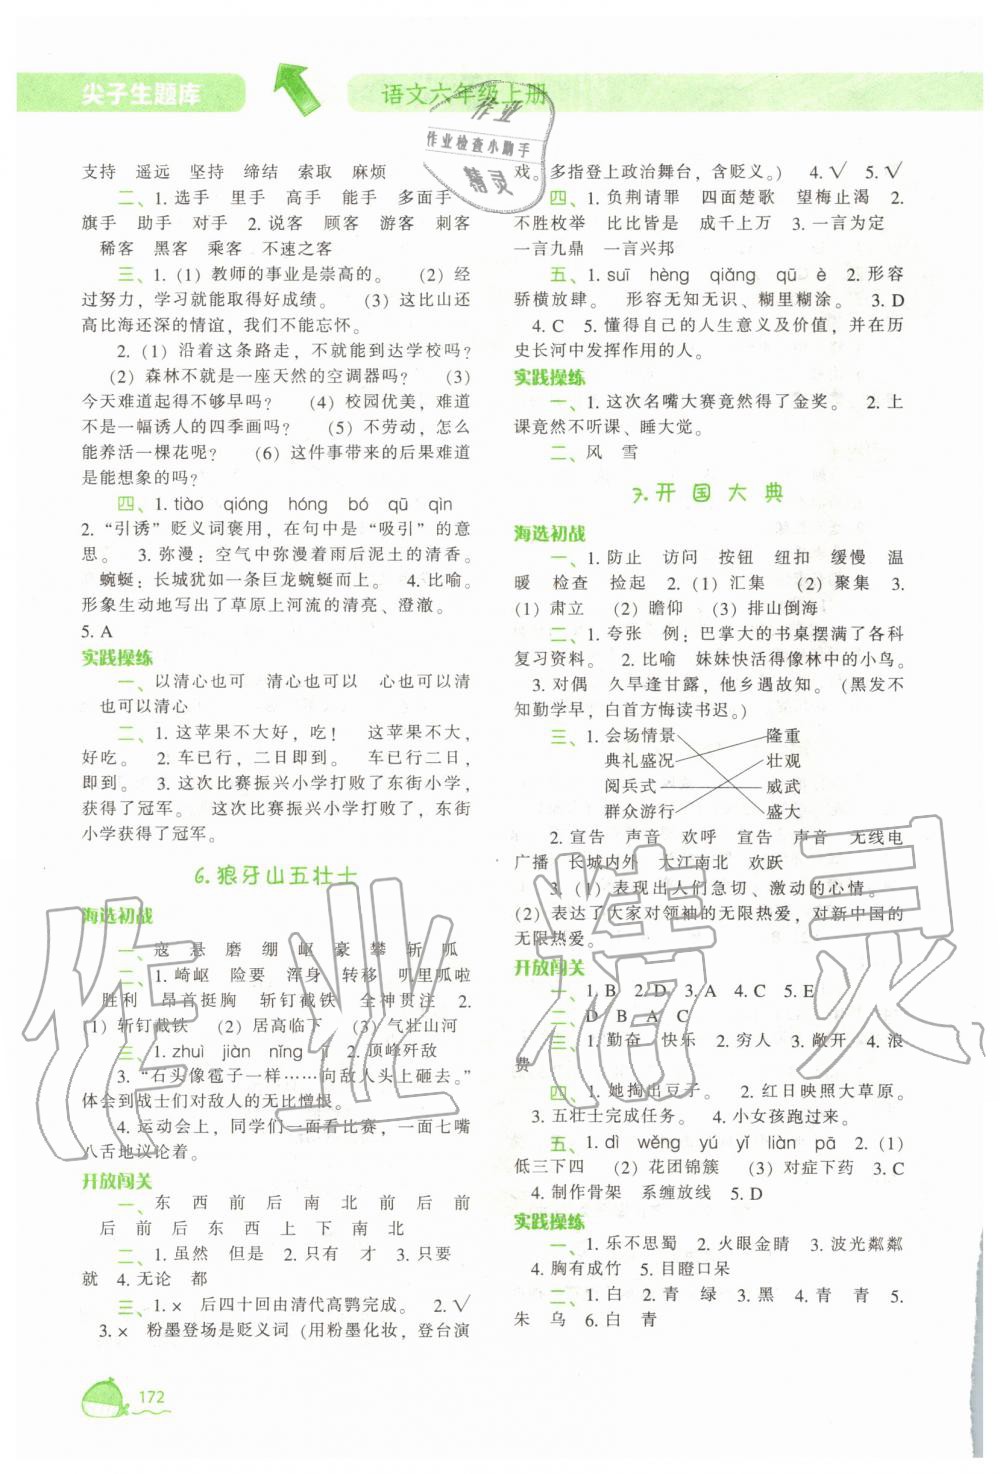 尖子生题库
语文六年级上册
作业
作业检查小助手
精灵
支持 遥远 坚持 缔结 索取 麻烦
二、1. 选手 里手 高手 能手 多面手
旗手 助手 对手 2. 说客 顾客 游客 刺客
稀客 黑客 乘客 不速之客
三、1. (1) 教师的事业是崇高的。 (2) 经
过努力，学习就能取得好成绩。 (3) 这比山还
高比海还深的情谊，我们不能忘怀。
2. (1) 沿着这条路走，不就能到达学校吗？
(2) 森林不就是一座天然的空调器吗？ (3)
今天难道起得不够早吗？ (4) 校园优美，难道
不是一幅诱人的四季画吗？ (5) 不劳动，怎么
能养活一棵花呢？ (6) 这件事带来的后果难道
是能想象的吗？
四、1. tiào qióng hóng bó qū qìn
2. “引诱”贬义词褒用，在句中是“吸引”的意
思。 3. 弥漫：空气中弥漫着雨后泥土的清香。
蜿蜒：长城犹如一条巨龙蜿蜒而上。 4. 比喻。
形象生动地写出了草原上河流的清亮、澄澈。
5. A
实践操练
一、以清心也可 清心也可以 心也可以清
也可以清心
二、1. 这苹果不大好，吃！ 这苹果不大，
好吃。 2. 车已行，二日即到。 车已行二日，
即到。 3. 这次比赛振兴小学打败了东街小学，
获得了冠军。 这次比赛振兴小学打败了，东街
小学获得了冠军。
6. 狼牙山五壮士
海选初战
一、寇 悬 磨 绷 岖 豪 攀 斩 呱
二、1. 崎岖 险要 浑身 转移 叽里呱啦
胜利 昂首挺胸 斩钉截铁 全神贯注 2.
(1) 斩钉截铁 (2) 居高临下 (3) 气壮山河
三、1. zhuì jiàn nǐng jī 2. 顶峰歼敌
3. “石头像雹子一样……向敌人头上砸去。”
体会到战士们对敌人的无比憎恨。
4. 运动会上，同学们一面看比赛，一面七嘴
八舌地议论着。
开放闯关
一、东 西 前 后 南 北 前 后 前
后 前 后 东 西 上 下 南 北
二、1. 虽然 但是 2. 只有 才 3. 只要
就 4. 无论 都
三、1. × 后四十回由清代高鹗完成。 2. √
3. × 粉墨登场是贬义词 (用粉墨化妆，登台演
戏。多指登上政治舞台，含贬义。) 4. √ 5. √
四、1. 负荆请罪 四面楚歌 望梅止渴 2.
不胜枚举 比比皆是 成千上万 3. 一言为定
一言九鼎 一言兴邦
五、1. suī hèng qiǎng qū è 2. 形容
骄横放肆。 形容无知无识、糊里糊涂。 3. D
4. C 5. 懂得自己的人生意义及价值，并在历
史长河中发挥作用的人。
实践操练
一、1. 这次名嘴大赛竟然得了金奖。 2. 上
课竟然不听课、睡大觉。
二、风 雪
7. 开国大典
海选初战
一、1. 防止 访问 按钮 纽扣 缓慢 温
暖 检查 捡起 2. (1) 汇集 (2) 聚集 3.
(1) 肃立 (2) 瞻仰 (3) 排山倒海
二、1. 夸张 例：巴掌大的书桌摆满了各科
复习资料。 2. 比喻 妹妹快活得像林中的小鸟。
3. 对偶 久旱逢甘露，他乡遇故知。(黑发不
知勤学早，白首方悔读书迟。)
三、1. 会场情景 隆重
典礼盛况 壮观
阅兵式 威武
群众游行 盛大
2. 宣告 声音 欢呼 宣告 声音 无线电
广播 长城内外 大江南北 欢跃
3. (1) 表现出人们急切、激动的心情。
(2) 表达了大家对领袖的无限热爱，对新中国的
无限热爱。
开放闯关
一、1. B 2. D 3. A 4. C 5. E
二、D B A C
三、1. 勤奋 快乐 2. 穷人 3. 敞开 4. 浪
费
四、1. 她掏出豆子。 2. 红日映照大草原。
3. 五壮士完成任务。 4. 小女孩跑过来。
五、1. dì wěng yú yǐ liàn pā 2. (1)
低三下四 (2) 花团锦簇 (3) 对症下药 3. C
4. 制作骨架 系缠放线 5. D
实践操练
一、1. 乐不思蜀 2. 火眼金睛 3. 波光粼粼
4. 胸有成竹 5. 目瞪口呆
二、1. 白 2. 青 绿 3. 黑 4. 青 青 5.
朱 乌 6. 白 青
172
作业精灵